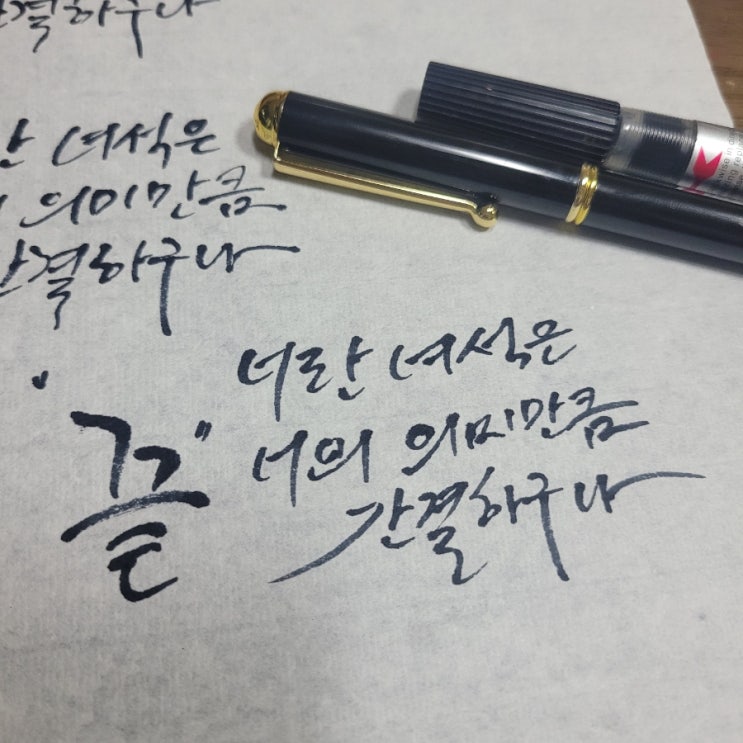 간결하구나
란 녀석은
의 의미만큼
간결하구나
"끝"
너란 녀석은
너의 의미만큼
간결하구나